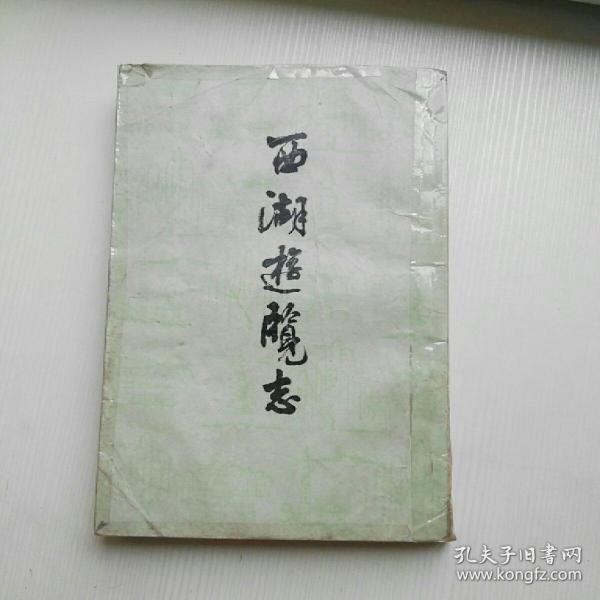 西湖遊覽志
孔夫子旧書网
www.kongfz.com